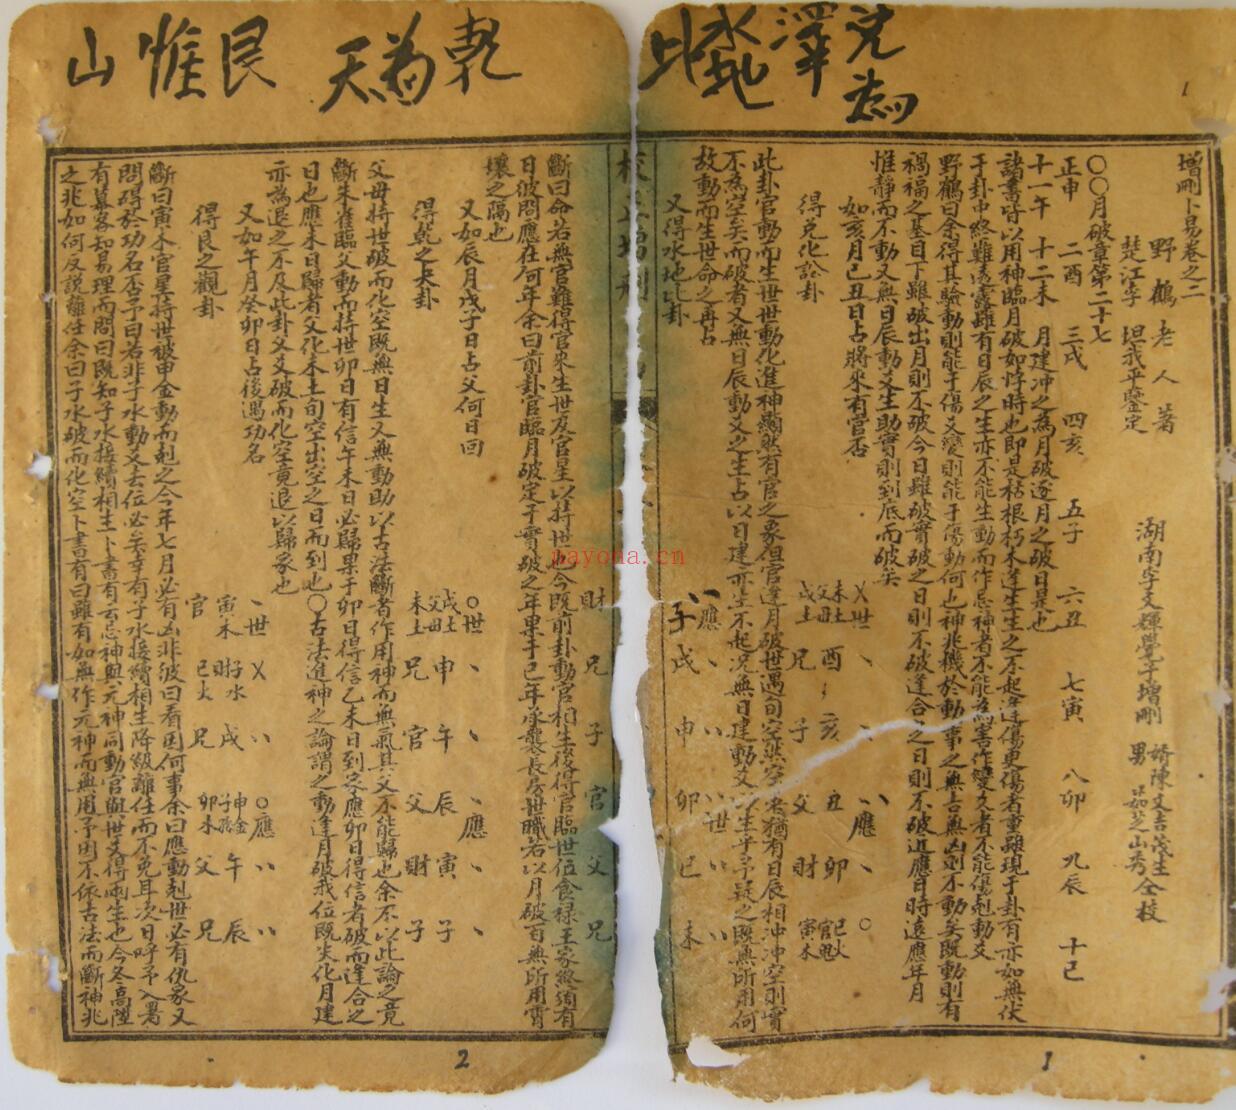 兌為澤
水地比
乾為天
艮惟山
增刪卜易卷之二
野鶴老人著
楚江李坦我平鑒定
湖南李文輝覺子增刪
婿陳文吉茂生
男茹芝山秀仝校
〇〇月破章第二十七
正申 二酉 三戌 四亥 五子 六丑 七寅 八卯 九辰 十巳
十一午 十二未 月建冲之為月破逐月之破日是也
諸書皆以用神臨月破如悖時也即是枯根朽木逢生生之不起逢傷更傷者重雖現于卦有亦如無伏
于卦中終難透露雖有日辰之生亦不能生動而作忌神者不能為害作變爻者不能傷剋動爻
野鶴曰余得其驗動則能于傷爻變則能于傷動何也神兆機於動事之無吉無凶則不動矣既動則有
禍福之基目下雖破出月則不破今日雖破實破之日則不破逢合之日則不破近應日時遠應年月
惟靜而不動又無日辰動爻生助實則到底而破矣
如亥月己丑日占將來有官否
得兌化訟卦
乂世 、 、、 、應 、 〇
未土父母 酉 亥 丑 卯 巳火官鬼
戌土 兄 子 父 財 寅木
此卦官動而生世世動化進神顯然有官之象但官逢月破世遇旬空然空猶有日辰相冲冲空則實
不為空矣而破者又無日辰動爻之生占以日建亦生不起况無日建動爻以生乎予疑之既無所用何
故動而生世命之再占
又得水地比卦
應 世
子 戌 申 卯 巳 未
財 兄 子 官 父 兄
斷曰命若無官難得官來生世及官星以持世也今既前卦動官相生後得官臨世位食禄王家終須有
日彼問應在何年余曰前卦官臨月破定于實破之年果于巳年承襲長房世職若以月破百無所用霄
壤之隔也
又如辰月戊子日占父何日回
得乾之夬卦
〇世 、 、 、應 、 、
戌土父母 申 午 辰 寅 子
未土 兄 官 父 財 子
父母持世破而化空既無日生又無動助以古法斷者作用神而無氣其父不能歸也余不以此論之竟
斷朱雀臨父動而持世卯日有信午未日必歸果于卯日得信乙未日到家應卯日得信者破而逢合之
日也應未日歸者父化未土旬空出空之日而到也〇古法進神之論謂之動逢月破我位既失化月建
亦為退之不及此卦父爻破而化空竟退以歸家也
又如午月癸卯日占後遇功名
得艮之觀卦
、世 乂 、、 〇應 、、 、、
寅木 子水 戌 申金 午 辰
官 財 兄 子孫 父 兄
巳火 卯木
斷曰寅木官星持世被申金動而剋之今年七月必有凶非彼曰看因何事余曰應動剋世必有仇家又
問碍於功名否予曰若非子水動爻去位必矣幸有子水接續相生降級離任而不免耳次日呼予入署
有幕客知易理而問曰既知子水接續相生卜書有云忌神與元神同動官與世爻得兩生也今冬高陞
之兆如何反説離任余曰子水破而化空卜書有曰雖有如無作元神而無用予因不依古法而斷神兆
2
1
nayona.cn